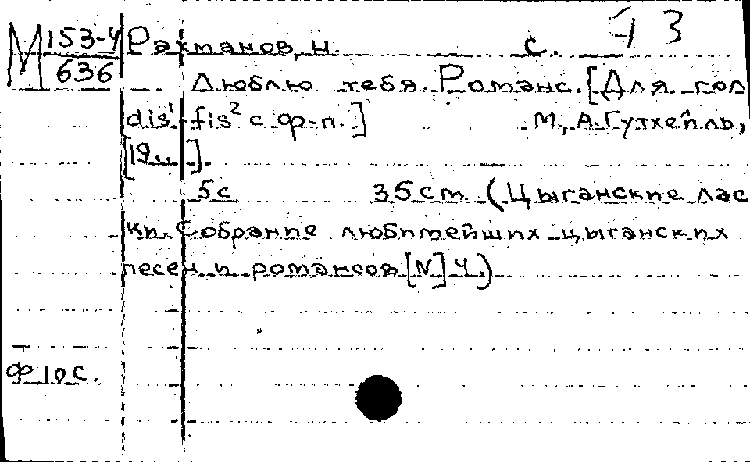 М 153-4 Рахманов, Н. с. 43
636
Люблю тебя. Романс. [Для гол
dis¹-fis² с ф-п.] М., А. Гутхейль,
[19 ].
5с 35 cm (Цыганские лас
ки. Собрание любимейших цыганских
песен и романсов [N] 4.)
Ф 10с.